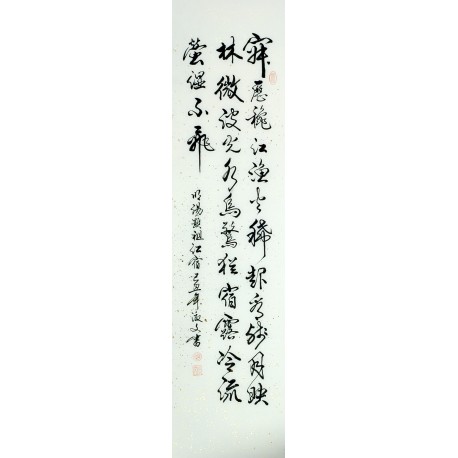 寂歷穐江漁火稀起看殘月映
林微波光水鳥驚猶宿露冷流
螢濕不飛
明湯顯祖江宿己丑年淑文書